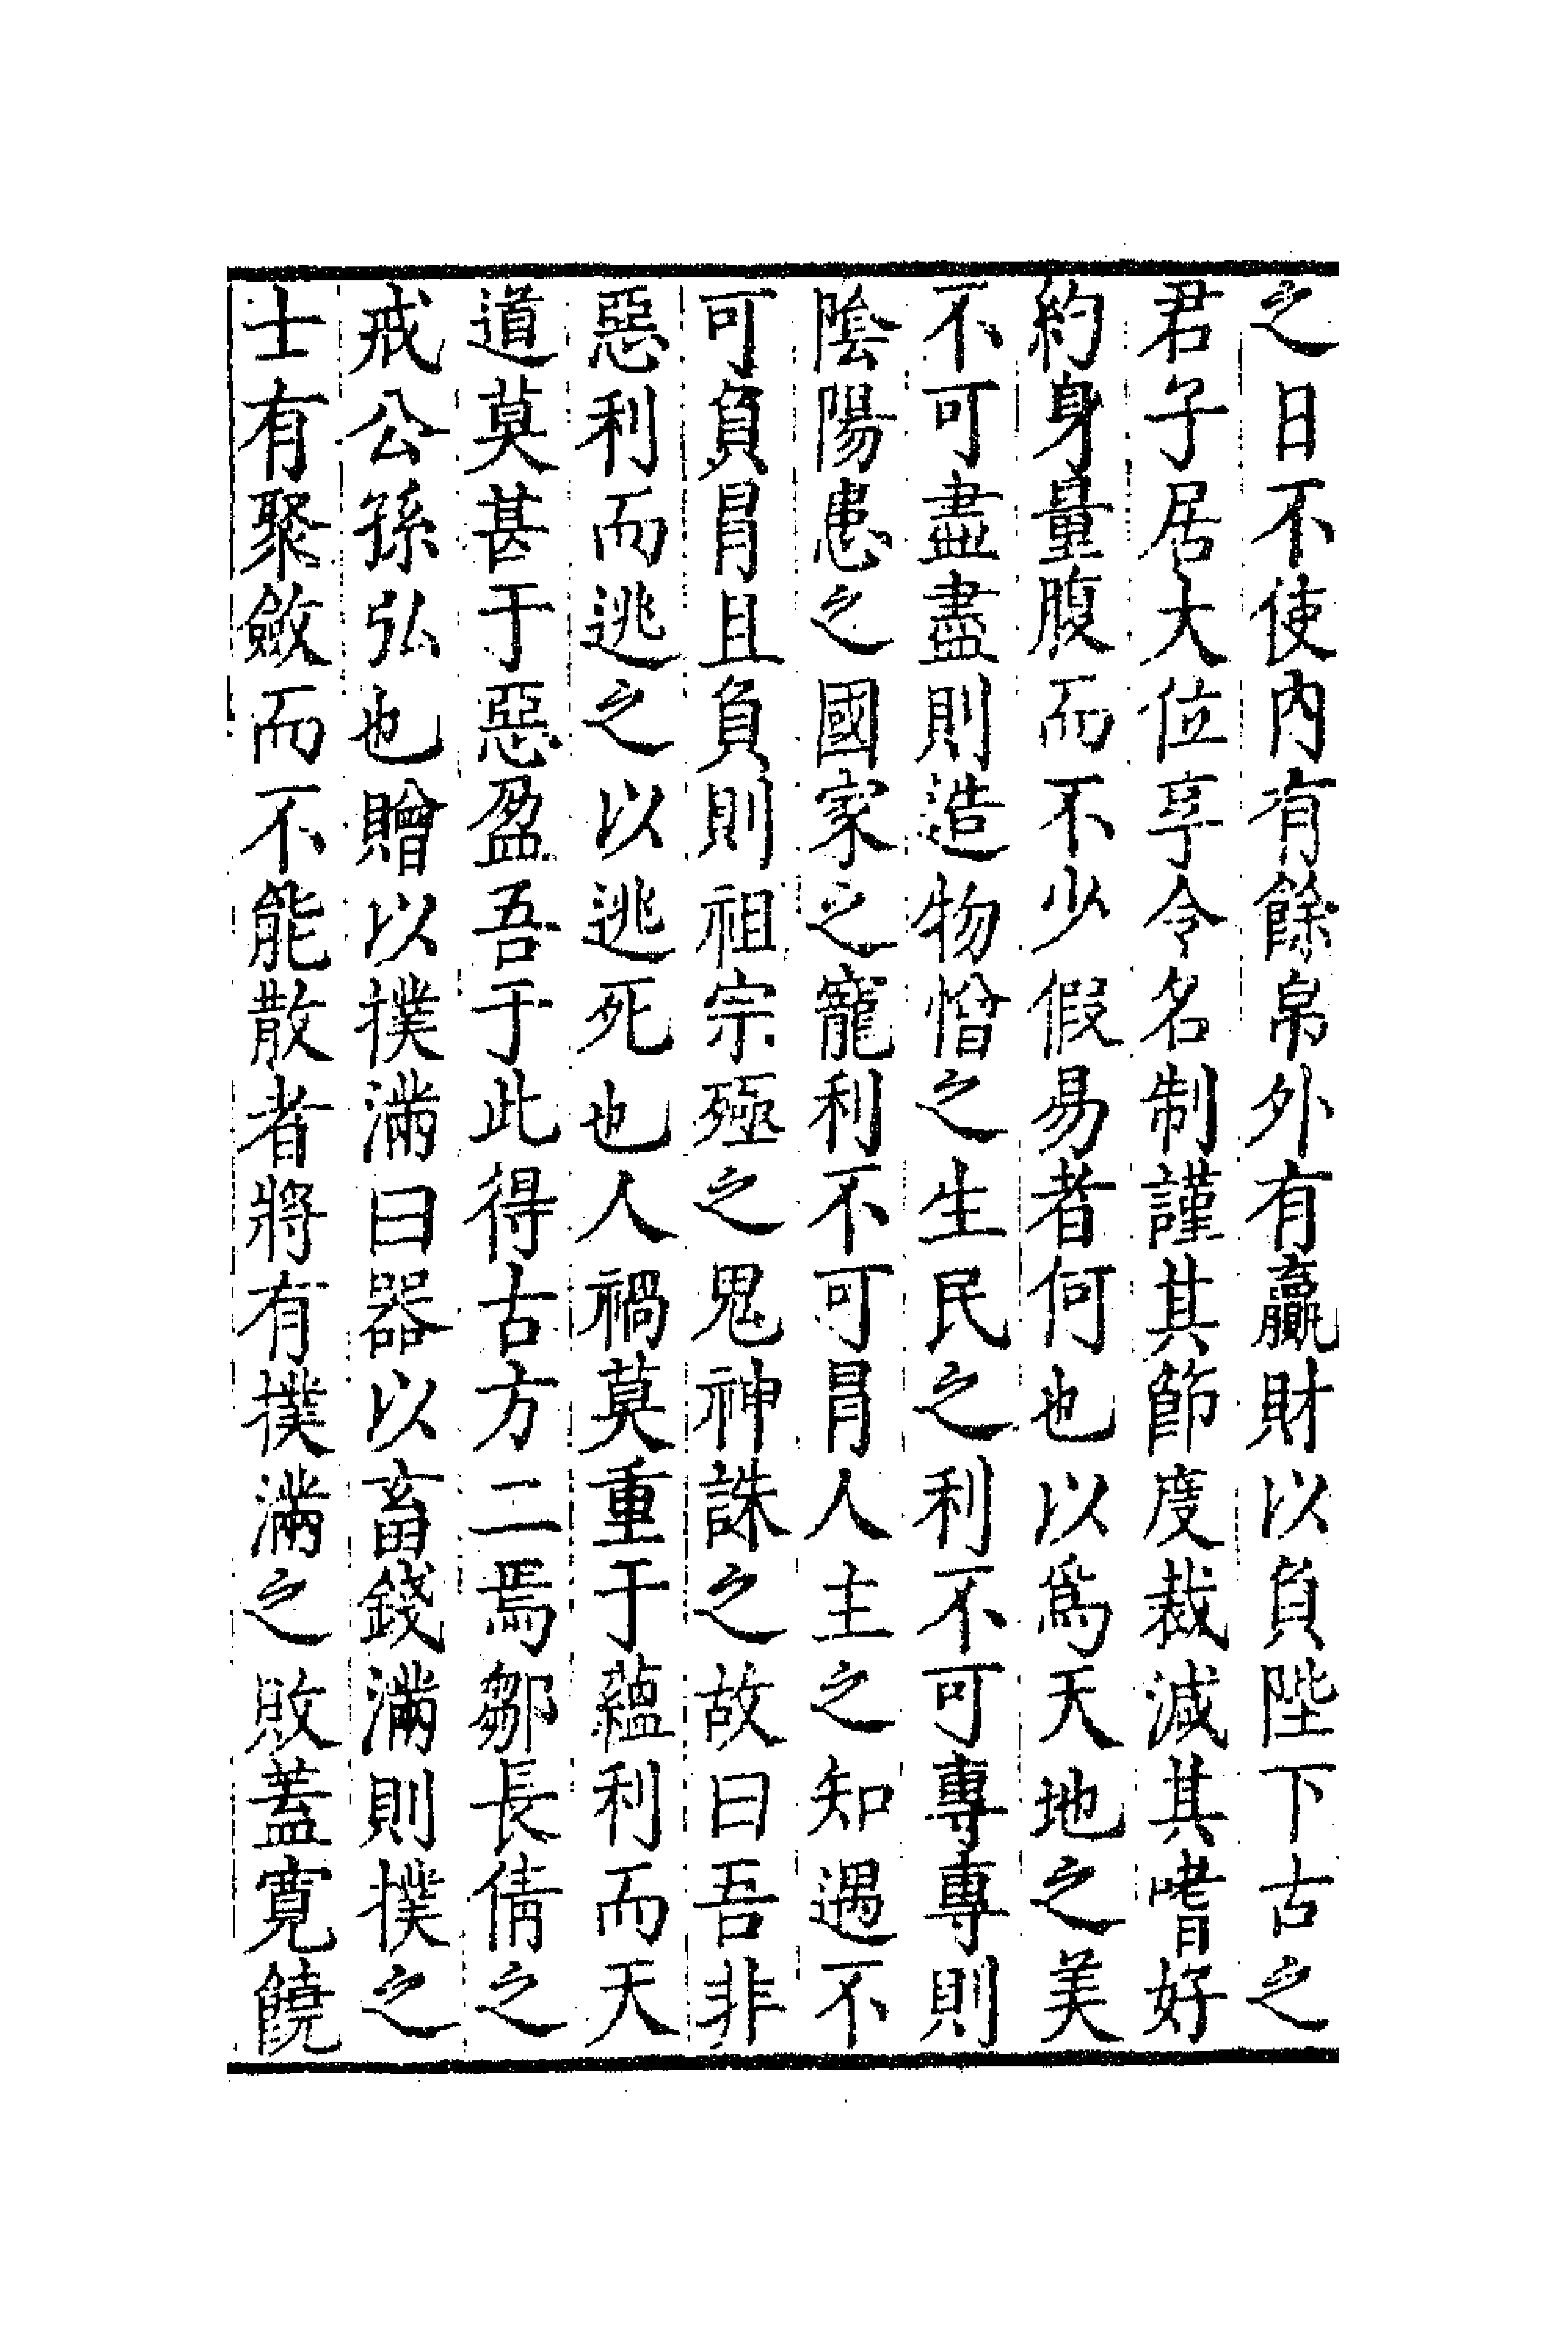 之日不使内有餘帛外有贏財以負陛下古之
君子居大位享令名制謹其節度裁減其嗜好
約身量腹而不少假易者何也以為天地之美
不可盡盡則造物㦧之生民之利不可專專則
陰陽患之國家之寵利不可冒人主之知遇不
可負冒且負則祖宗殛之鬼神誅之故曰吾非
惡利而逃之以逃死也人禍莫重于蘊利而天
道莫甚于惡盈吾于此得古方二焉鄒長倩之
戒公孫弘也贈以撲滿曰器以畜錢滿則撲之
士有聚斂而不能散者將有撲滿之敗蓋寬饒